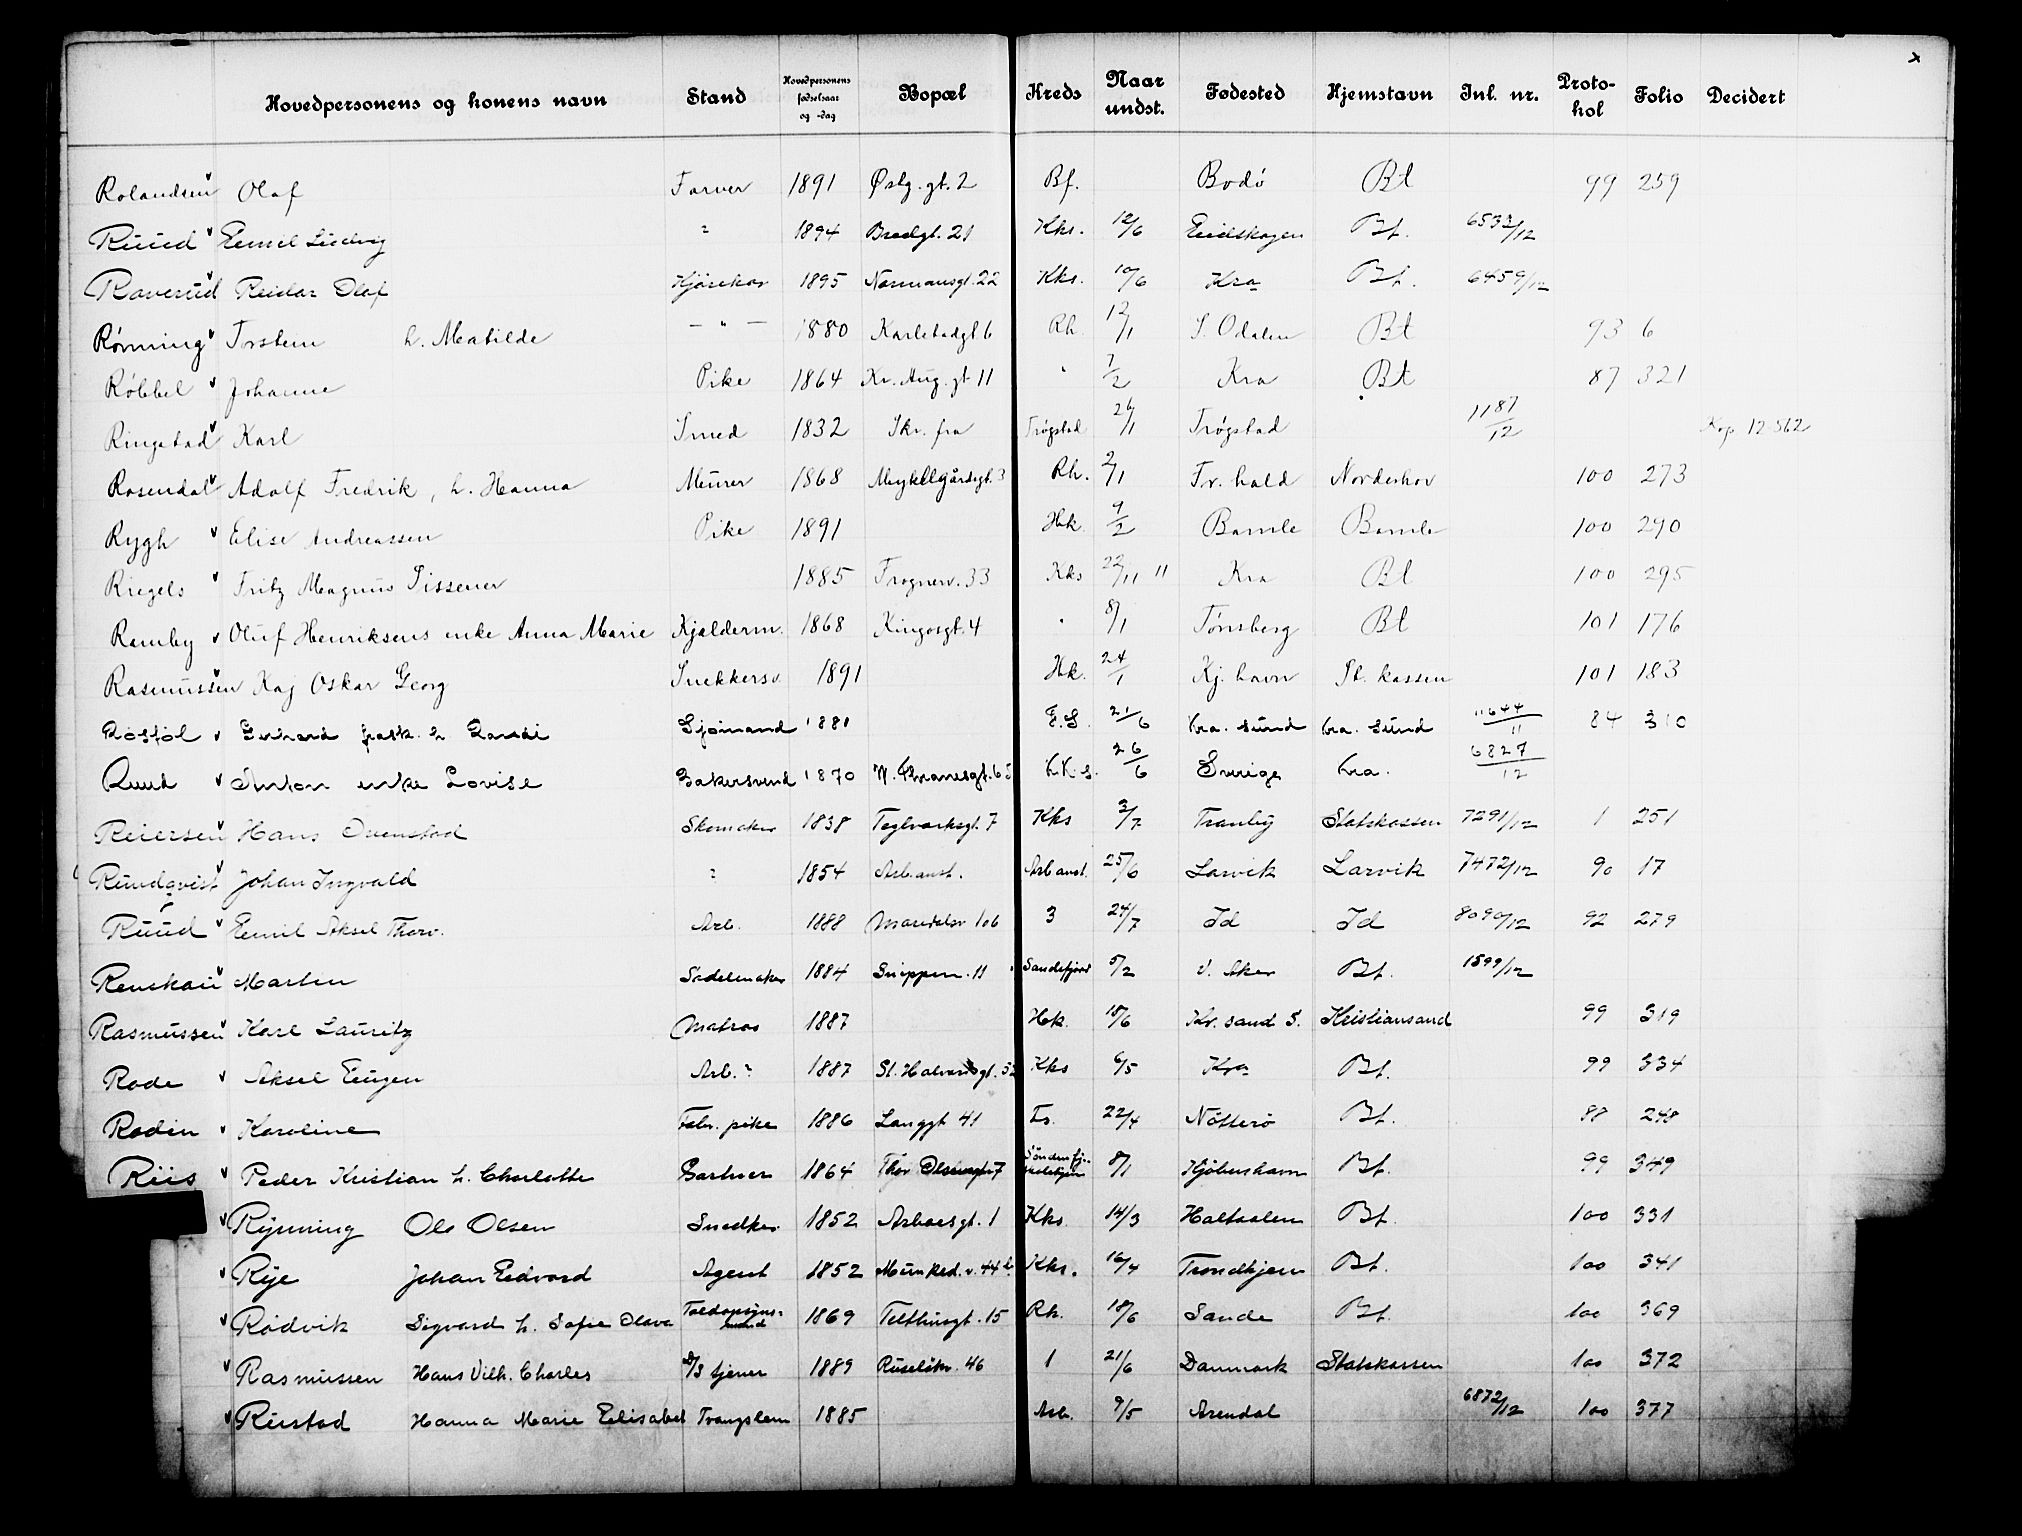 x
Hovedpersonens og konens navn Stand Hovedpersonens fødselsaar og -dag Bopæl Kreds Naar undst. Fødested Hjemstavn Inl. nr. Protokol Folio Decidert
Rolandsen Olaf Farver 1891 Østg. gt. 2 Bf. Bodø Bt 99 259
Ruud Emil Ludvig " 1894 Bredgt. 21 Kks. 12/6 Eidskogen Bt. 6533/12
Raverud Reidar Olaf Kjørekar 1895 Normansgt. 22 Kks. 10/6 Kra Bt. 6459/12
Rønning Torstein h. Matilde — " — 1880 Karlstadgt 6 Rh. 12/1 S. Odalen Bt 93 6
Røbbel Johanne Pike 1864 Kr. Aug. gt 11 " 7/2 Kra Bt 87 321
Ringstad Karl Smed 1832 Skr. fra Trøgstad 26/1 Trøgstad 1187/12 Kop 12 562
Rosendal Adolf Fredrik, h. Hanna Murer 1868 Møykellgårdsgt. 3 Rh. 2/1 Fr. hald Norderhov 100 273
Rygh Elise Andreassen Pike 1891 Hk. 9/2 Bamle Bamle 100 290
Riegels Fritz Magnus Sissener 1885 Frognerv. 33 Kks 22/11 11 Kra Bt 100 295
Ramby Oluf Henriksens enke Anna Marie Kjælderm. 1868 Kingosgt. 4 " 8/1 Tønsberg Bt 101 176
Rasmussen Kaj Oskar Georg Snekkersv. 1891 Hk. 24/1 Kj. havn St. kassen 101 183
Røsføl frask. h. Sjømand 1881 F.S. 21/6 Kra. sund Kra. sund 11644/11 84 310
Ruud Anton enke Lovise Bakersvend 1870 W. Thranesgt. 65 26/6 Sverige Kra. 6827/12
Reiersen Hans Ovenstad Skomaker 1838 Teglverksgt. 7 Kks 3/7 Tranby Statskassen 7291/12 1 251
Rundqvist Johan Ingvald " 1854 Arb.anst. Arb anst. 25/6 Larvik Larvik 7472/12 90 17
Ruud Emil Aksel Thorv. Arb. 1888 Maridalsv 106 3 24/7 Id Id 8090/12 92 279
Renskau Marten Sadelmaker 1884 Snippen. 11 Sandefjord 5/2 V. Aker Bt. 1599/12
Rasmussen Karl Lauritz Matros 1887 Hek. 18/6 Kr. sand S. Kristiansand 99 319
Rode Aksel Eugen Arb. " 1887 St. Halvardsgt. 52 Kks 6/5 Kra Bt. 99 334
Rodin Karoline Fabr. pike 1886 Langgt 41 Fs. 22/4 Nøtterø Bt. 88 248
Riis Peder Kristian h. Charlotte Gartner 1864 Thor Olsensgt 7 8/1 Kjøbenhavn Bt. 99 349
Rynning Ole Olsen Snedker 1852 Aarboesgt. 1 Kks. 14/3 Haltaalen Bt. 100 331
Rye Johan Edvard Agent 1852 Munked. v. 44 b. Kks. 16/4 Trondhjem Bt. 100 341
Rødvik Sigvard h. Sofie Olava Toldopsynsmand 1869 Telthusgt. 15 Rh. 18/6 Sande Bt. 100 369
Rasmussen Hans Vilh. Charles D/S tjener 1889 Ruseløkv. 46 1 21/6 Danmark Statskassen 100 372
Rustad Hanna Marie Elisabet Tvangslem 1885 Arb. 9/5 Arendal 6872/12 100 377